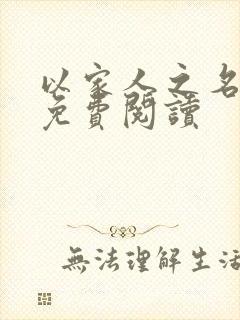 以家人之名
免費閱讀
無法理解生活